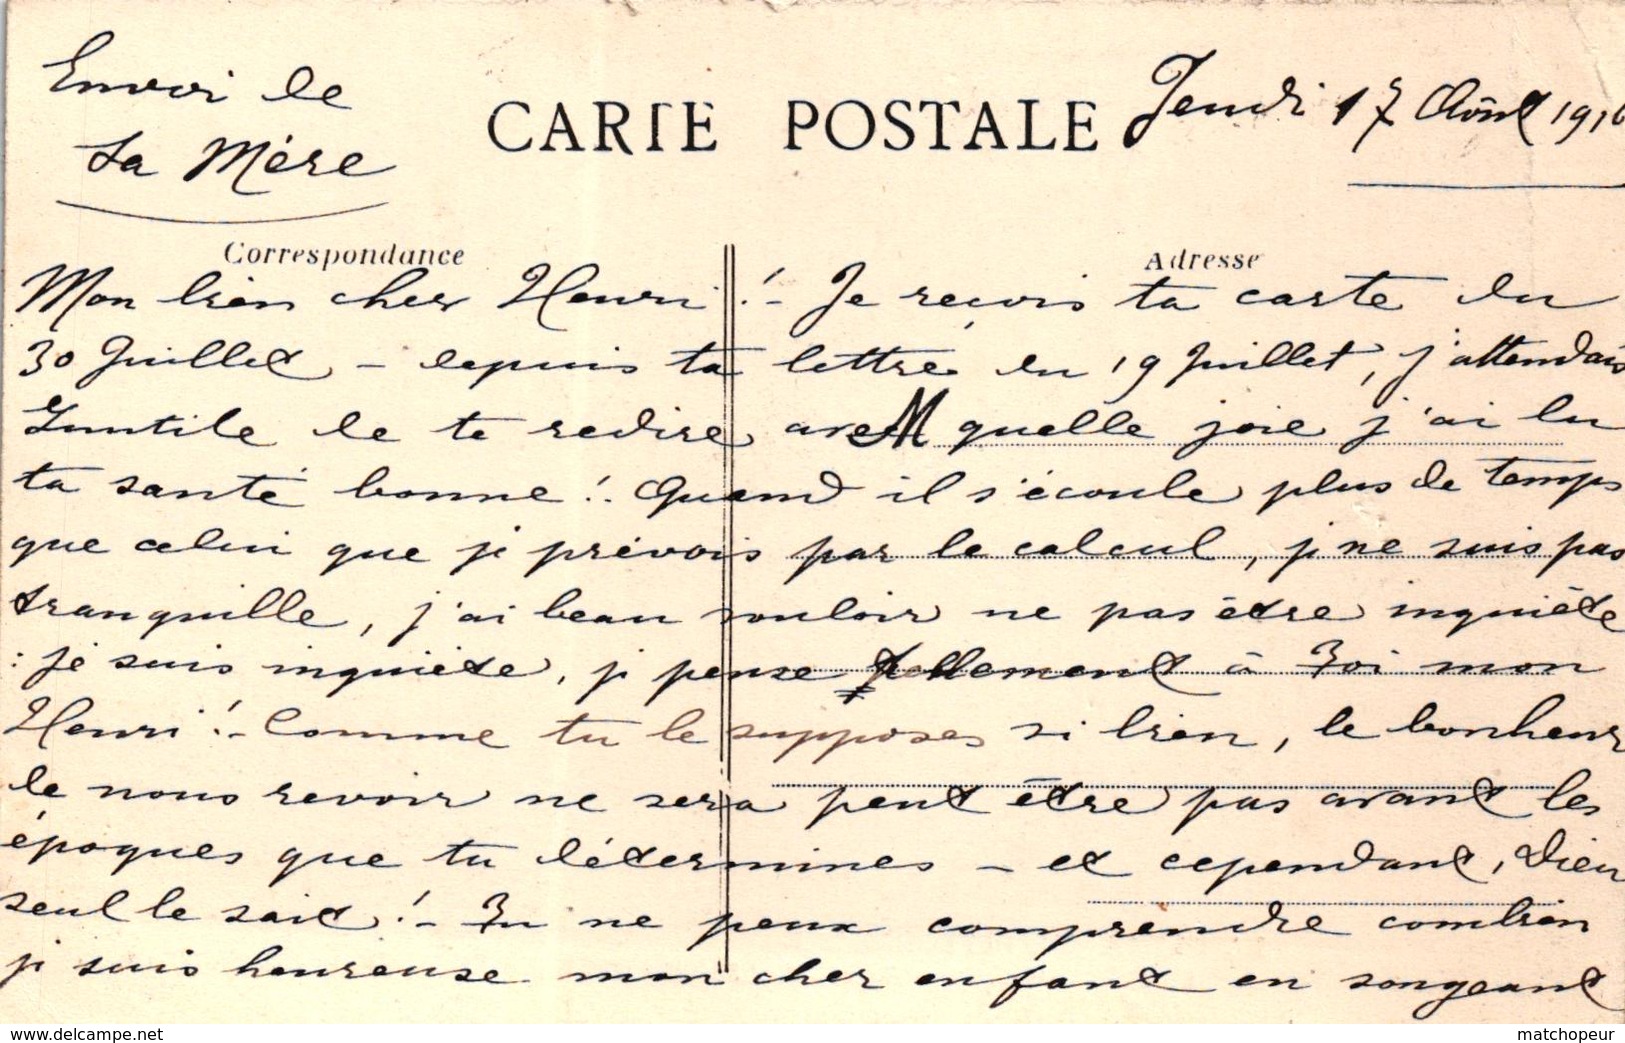 Envoi de
sa Mère
CARTE POSTALE
Jeudi 17 Août 191
Correspondance
Adresse
Mon bien cher Henri !- Je reçois ta carte du
30 Juillet - depuis ta lettre du 19 Juillet, j'attendais
Inutile de te redire avec quelle joie j'ai lu
ta santé bonne !- Quand il s'écoule plus de temps
que celui que je prévois par le calcul, je ne suis pas
tranquille, j'ai beau vouloir ne pas être inquiète
: je suis inquiète, je pense tellement à Toi mon
Henri !- Comme tu le supposes si bien, le bonheur
de nous revoir ne sera peut être pas avant les
époques que tu détermines - et cependant, Dieu
seul le sait !- Tu ne peux comprendre combien
je suis heureuse mon cher enfant en songeant
www.delcampe.net
matchopeur